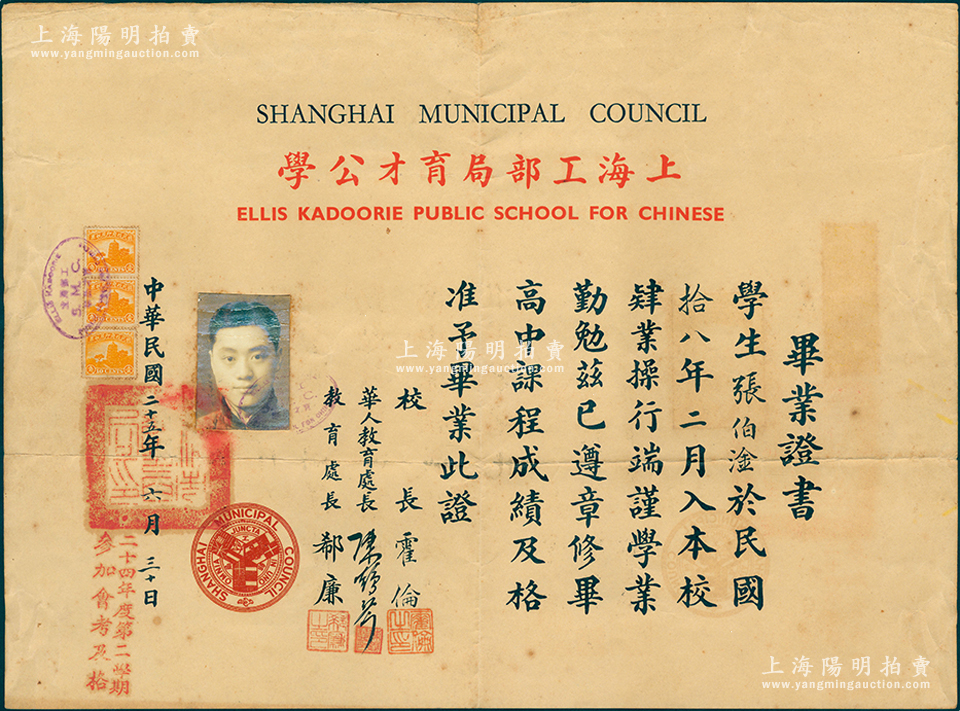 上海陽明拍賣
www.yangmingauction.com
SHANGHAI MUNICIPAL COUNCIL
上海工部局育才公學
ELLIS KADOORIE PUBLIC SCHOOL FOR CHINESE
畢業證書
學生張伯淦於民國
拾八年二月入本校
肄業操行端謹學業
勤勉茲已遵章修畢
高中課程成績及格
准予畢業此證
校長 霍倫
華人教育處長 陳鶴琴
教育處長 郗廉
中華民國二十五年六月三十日
二十四年度第二學期
參加會考及格
ELLIS KADOORIE
S. M. C.
SHANGHAI MUNICIPAL COUNCIL
OMNIA JUNCTA IN UNO
上海陽明拍賣
www.yangmingauction.com
上海陽明拍賣
www.yangmingauction.com